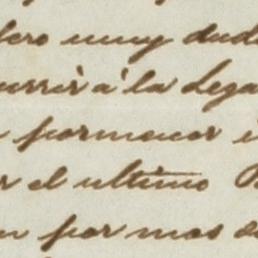 pero muy dud
urrir à la Lega
pormenor i
r el ultimo
n por mas d